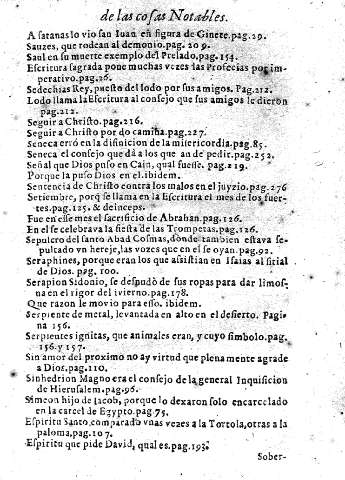 de las cosas Notables.
A satanas lo vio san Iuan en figura de Ginete. pag. 29.
Sauzes, que rodean al demonio. pag. 209.
Saul en su muerte exemplo del Prelado. pag. 154.
Escritura sagrada pone muchas vezes las Profecias por im-
perativo. pag. 26.
Sedechias Rey, puesto del lodo por sus amigos. Pag. 212.
Lodo llama la Escritura al consejo que sus amigos le dieron
pag. 212.
Seguir a Christo. pag. 216.
Seguir a Christo por do camina. pag. 227.
Seneca erró en la difinicion de la misericordia. pag. 85.
Seneca el consejo que dá a los que an de pedir. pag. 252.
Señal que Dios puso en Cain, qual fuesse. pag. 219.
Porque la puso Dios en el. ibidem.
Sentencia de Christo contra los malos en el juyzio. pag. 276
Setiembre, porq̃ se llama en la Escritura el mes de los fuer-
tes. pag. 125. & deinceps.
Fue en esse mes el sacrificio de Abrahan. pag. 126.
En el se celebrava la fiesta de las Trompetas. pag. 126.
Sepulcro del santo Abad Cosmas, donde tambien estava se-
pultado vn herege, las vozes que en el se oyan. pag. 92.
Seraphines, porque eran los que assistian en Isaias al sitial
de Dios. pag. 100.
Serapion Sidonio, se despudò de sus ropas para dar limos-
na en el rigor del ivierno. pag. 178.
Que razon le movio para esso. ibidem.
Serpiente de metal, levantada en alto en el desierto. Pagi-
na 156.
Serpientes ignitas, que animales eran, y cuyo simbolo. pag.
156. y 157.
Sin amor del proximo no ay virtud que plenamente agrade
a Dios. pag. 110.
Sinhedrion Magno era el consejo de la general Inquisicion
de Hierusalem. pag. 96.
Simeon hijo de Iacob, porque lo dexaron solo encarcelado
en la carcel de Egypto. pag 75.
Espiritu Santo comparado vnas vezes a la Tortola, otras a la
paloma, pag. 107.
Espiritu que pide David, qual es. pag. 193.
Sober-